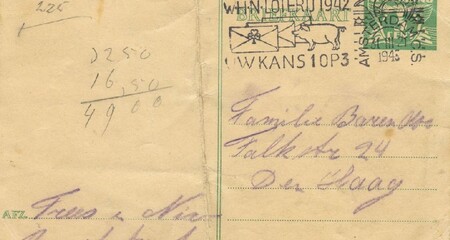 225
3250
16,50
4900
W.H.N. LOTERIJ 1942
BRIEFKAART
UW KANS 1 OP 3
AMSTERDAM
1943
Familie Barend
Falkstr 24
Den Haag
AFZ. Trees en